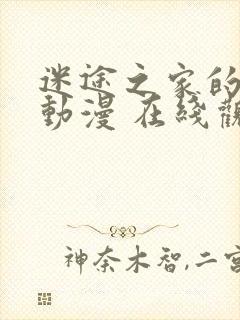 迷途之家的
動漫 在綫觀
神奈木智,二宮